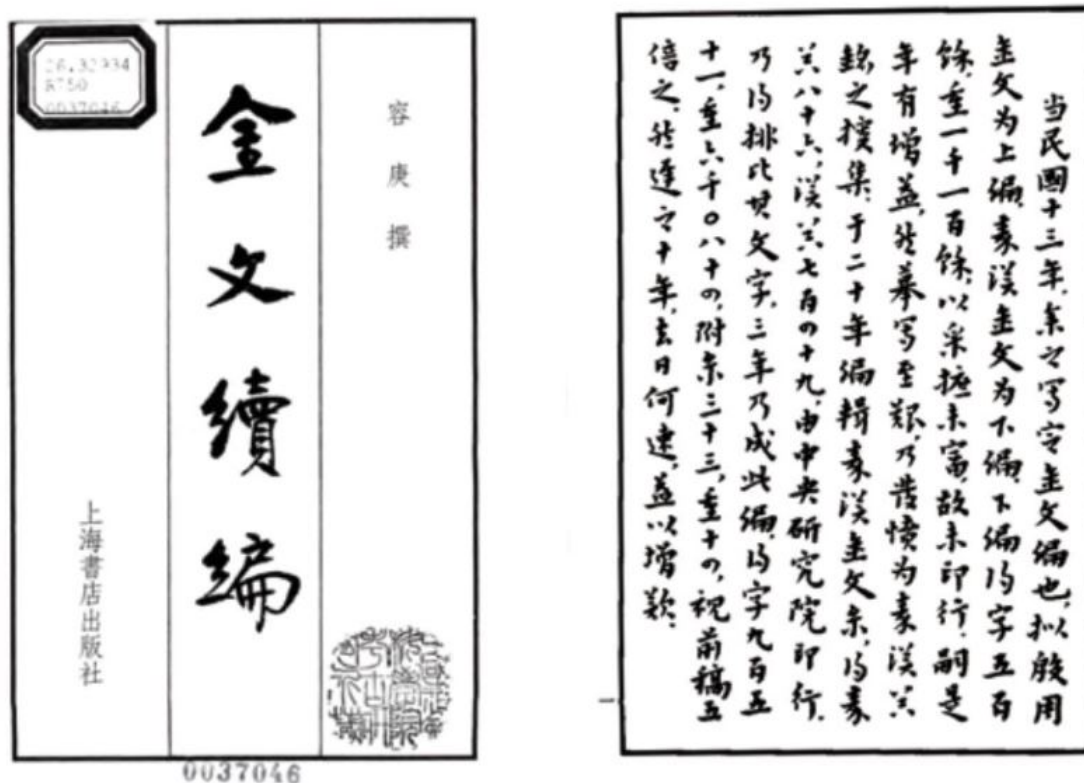 容庚撰
金文續編
上海書店出版社
0037046
0037046
当民國十三年,余之写定金文编也,拟殷周
金文为上編,秦漢金文为下編,下編得字五百
餘,重一千一百餘,以采摭未富,故未印行,嗣是
年有增益,然摹写至艱,乃發憤为秦漢器
銘之搜集,于二十年編輯秦漢金文录,得秦
器八十六,漢器七百四十九,由中央研究院印行,
乃得排比其文字,三年乃成此編,得字九百五
十一,重六千〇八十四,附录三十三,重十四,視前稿五
倍之,然遲之十年,去日何速,益以增歎.
一